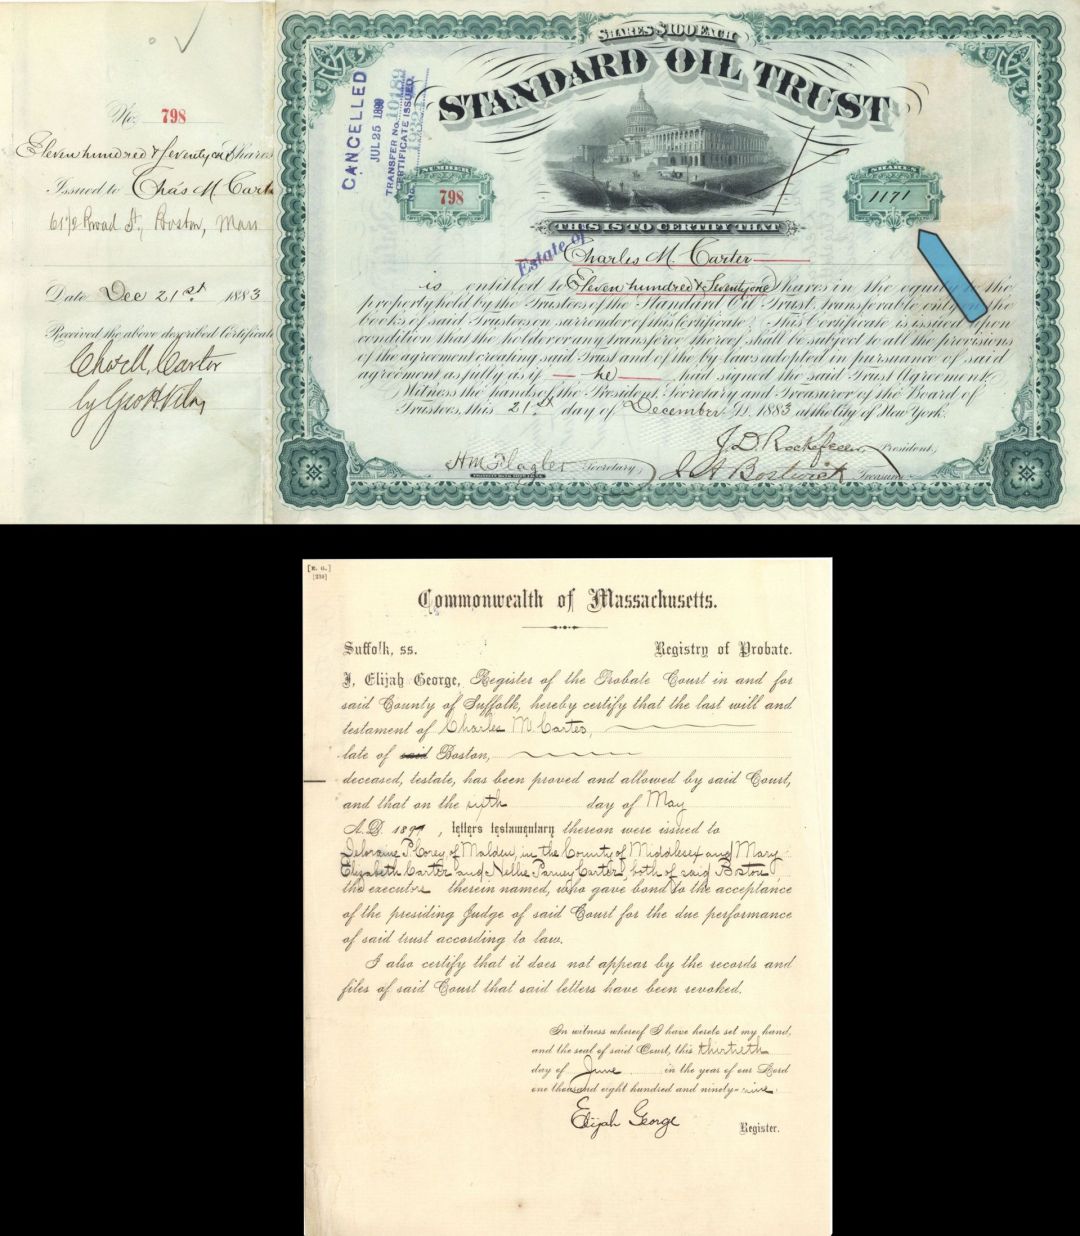 No. 798
Eleven hundred & Seventy one Shares
Issued to Chas M. Carter
61 1/2 Broad St, Boston, Mass
Date Dec 21st 1883
Received the above described Certificate
Chas M. Carter
by Geo H.
SHARES $100 EACH
STANDARD OIL TRUST
CANCELLED
JUL 25 1899
TRANSFER No. 10189
CERTIFICATE ISSUED
No.
NUMBER
798
SHARES
1171
THIS IS TO CERTIFY THAT
Estate of
Charles M. Carter
is entitled to Eleven hundred & Seventy one Shares in the equity to the
property held by the Trustees of the Standard Oil Trust, transferable only on the
books of said Trustees on surrender of this Certificate. This Certificate is issued upon
condition that the holder or any transferee thereof shall be subject to all the provisions
of the agreement creating said Trust and of the by-laws adopted in pursuance of said
agreement as fully as if he had signed the said Trust Agreement.
Witness the hands of the President, Secretary and Treasurer of the Board of
Trustees, this 21st day of December A.D. 1883 at the City of New York.
J.D. Rockefeller President,
H M Flagler Secretary
J A Bostwick Treasurer
Commonwealth of Massachusetts.
Suffolk, ss. Registry of Probate.
I, Elijah George, Register of the Probate Court in and for
said County of Suffolk, hereby certify that the last will and
testament of Charles M. Carter,
late of said Boston,
deceased, testate, has been proved and allowed by said Court,
and that on the sixth day of May
A.D. 1897, letters testamentary thereon were issued to
Deloraine P. Corey, of Malden, in the County of Middlesex and Mary
Elizabeth Carter and Nellie Parney Carter, both of said Boston,
the executors therein named, who gave bond to the acceptance
of the presiding Judge of said Court for the due performance
of said trust according to law.
I also certify that it does not appear by the records and
files of said Court that said letters have been revoked.
In witness whereof I have hereto set my hand,
and the seal of said Court, this thirtieth
day of June in the year of our Lord
one thousand eight hundred and ninety-nine.
Elijah George
Register.